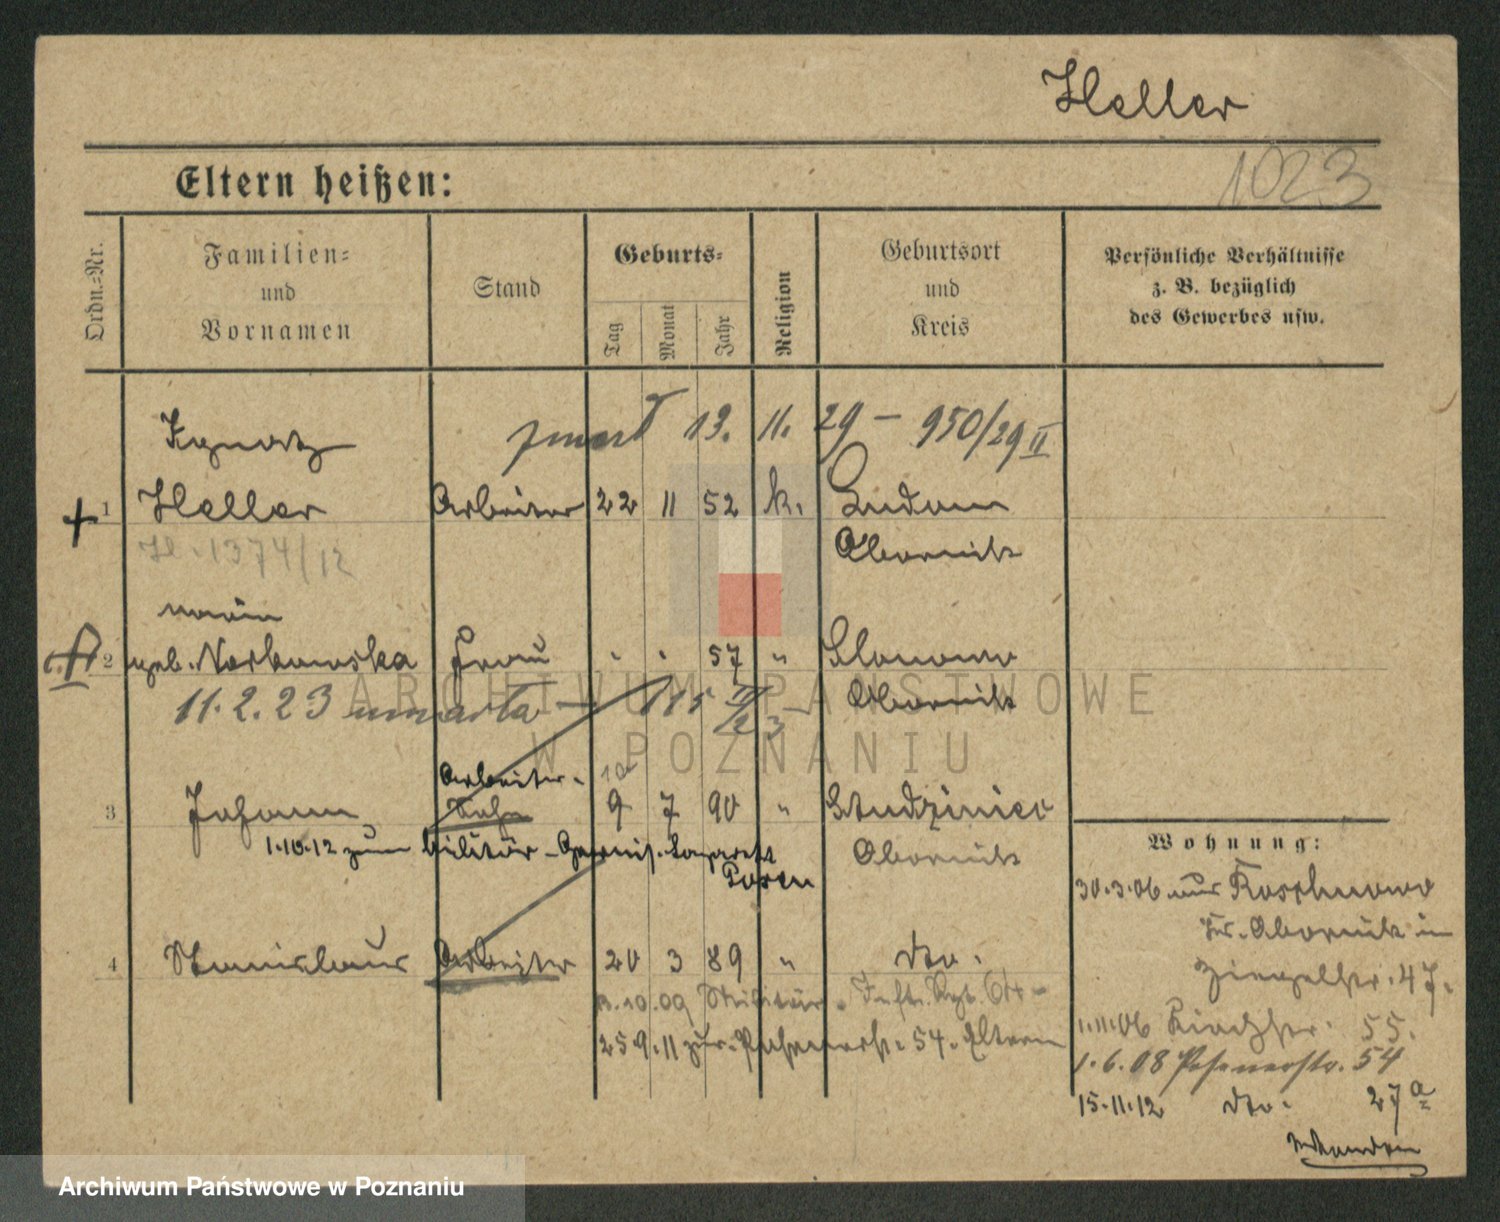 Heller
1023
Eltern heißen:
Ordn.-Nr.
Familien- und Vornamen
Stand
Geburts-
Tag
Monat
Jahr
Religion
Geburtsort und Kreis
Persönliche Verhältnisse z. B. bezüglich des Gewerbes usw.
Ignatz
zmarł 13. 11. 29 – 950/29 II
+ 1 Heller Arbeiter 22 11 52 k. Ludom
Obornik
H. 1374/12
2 geb. Norkowska Frau " " 57 " Slonawo
Obornik
11.2.23 umarła – 115 II/23
Arbeiter-
10
3 Johann Sohn 9 7 90 " Studziniec
Obornik
1.10.12 zum Militär - Garnis. Lazarett
Posen
4 Stanislaus Arbeiter 20 3 89 " dto.
10.09 Militär Inftr. Rgt.
25 9. 11 zur. Posenerstr. 54. Eltern
Wohnung:
30.3.06 aus Roschnowo
Kr. Obornik in
Ziegelstr. 47.
1.11.06 55.
1.6.08 Posenerstr. 54
15.11.12 dto. 27 a
Archiwum Państwowe w Poznaniu
ARCHIWUM PAŃSTWOWE
W POZNANIU